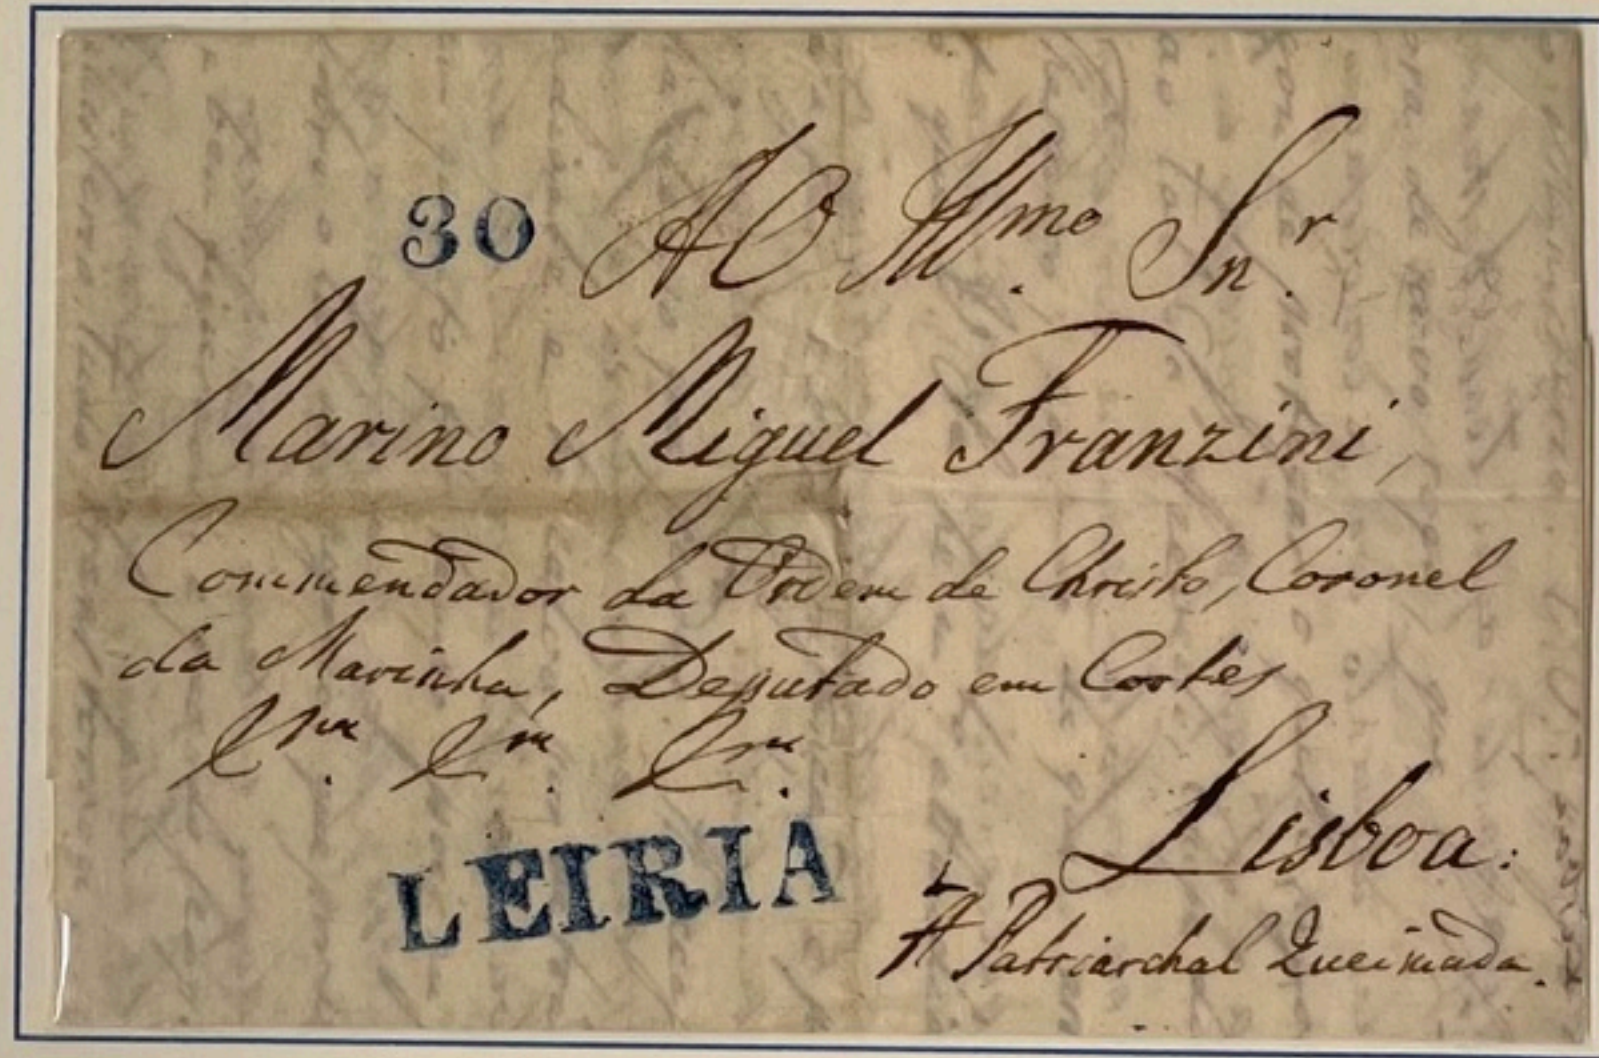 30 AO Illmo. Snr.
Marino Miguel Franzini,
Commendador da Ordem de Christo, Coronel
da Marinha, Deputado em Cortes
Lisboa:
LEIRIA
A Patriarchal Queimada.